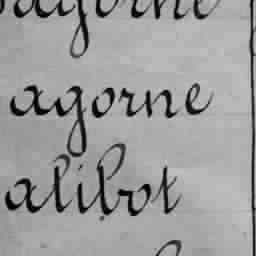 agorne
agorne
alibot